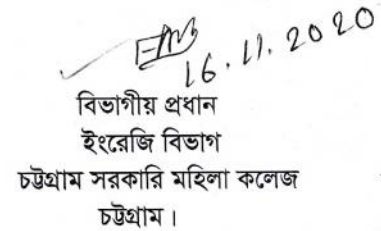 16.11.2020
বিভাগীয় প্রধান
ইংরেজি বিভাগ
চট্টগ্রাম সরকারি মহিলা কলেজ
চট্টগ্রাম।